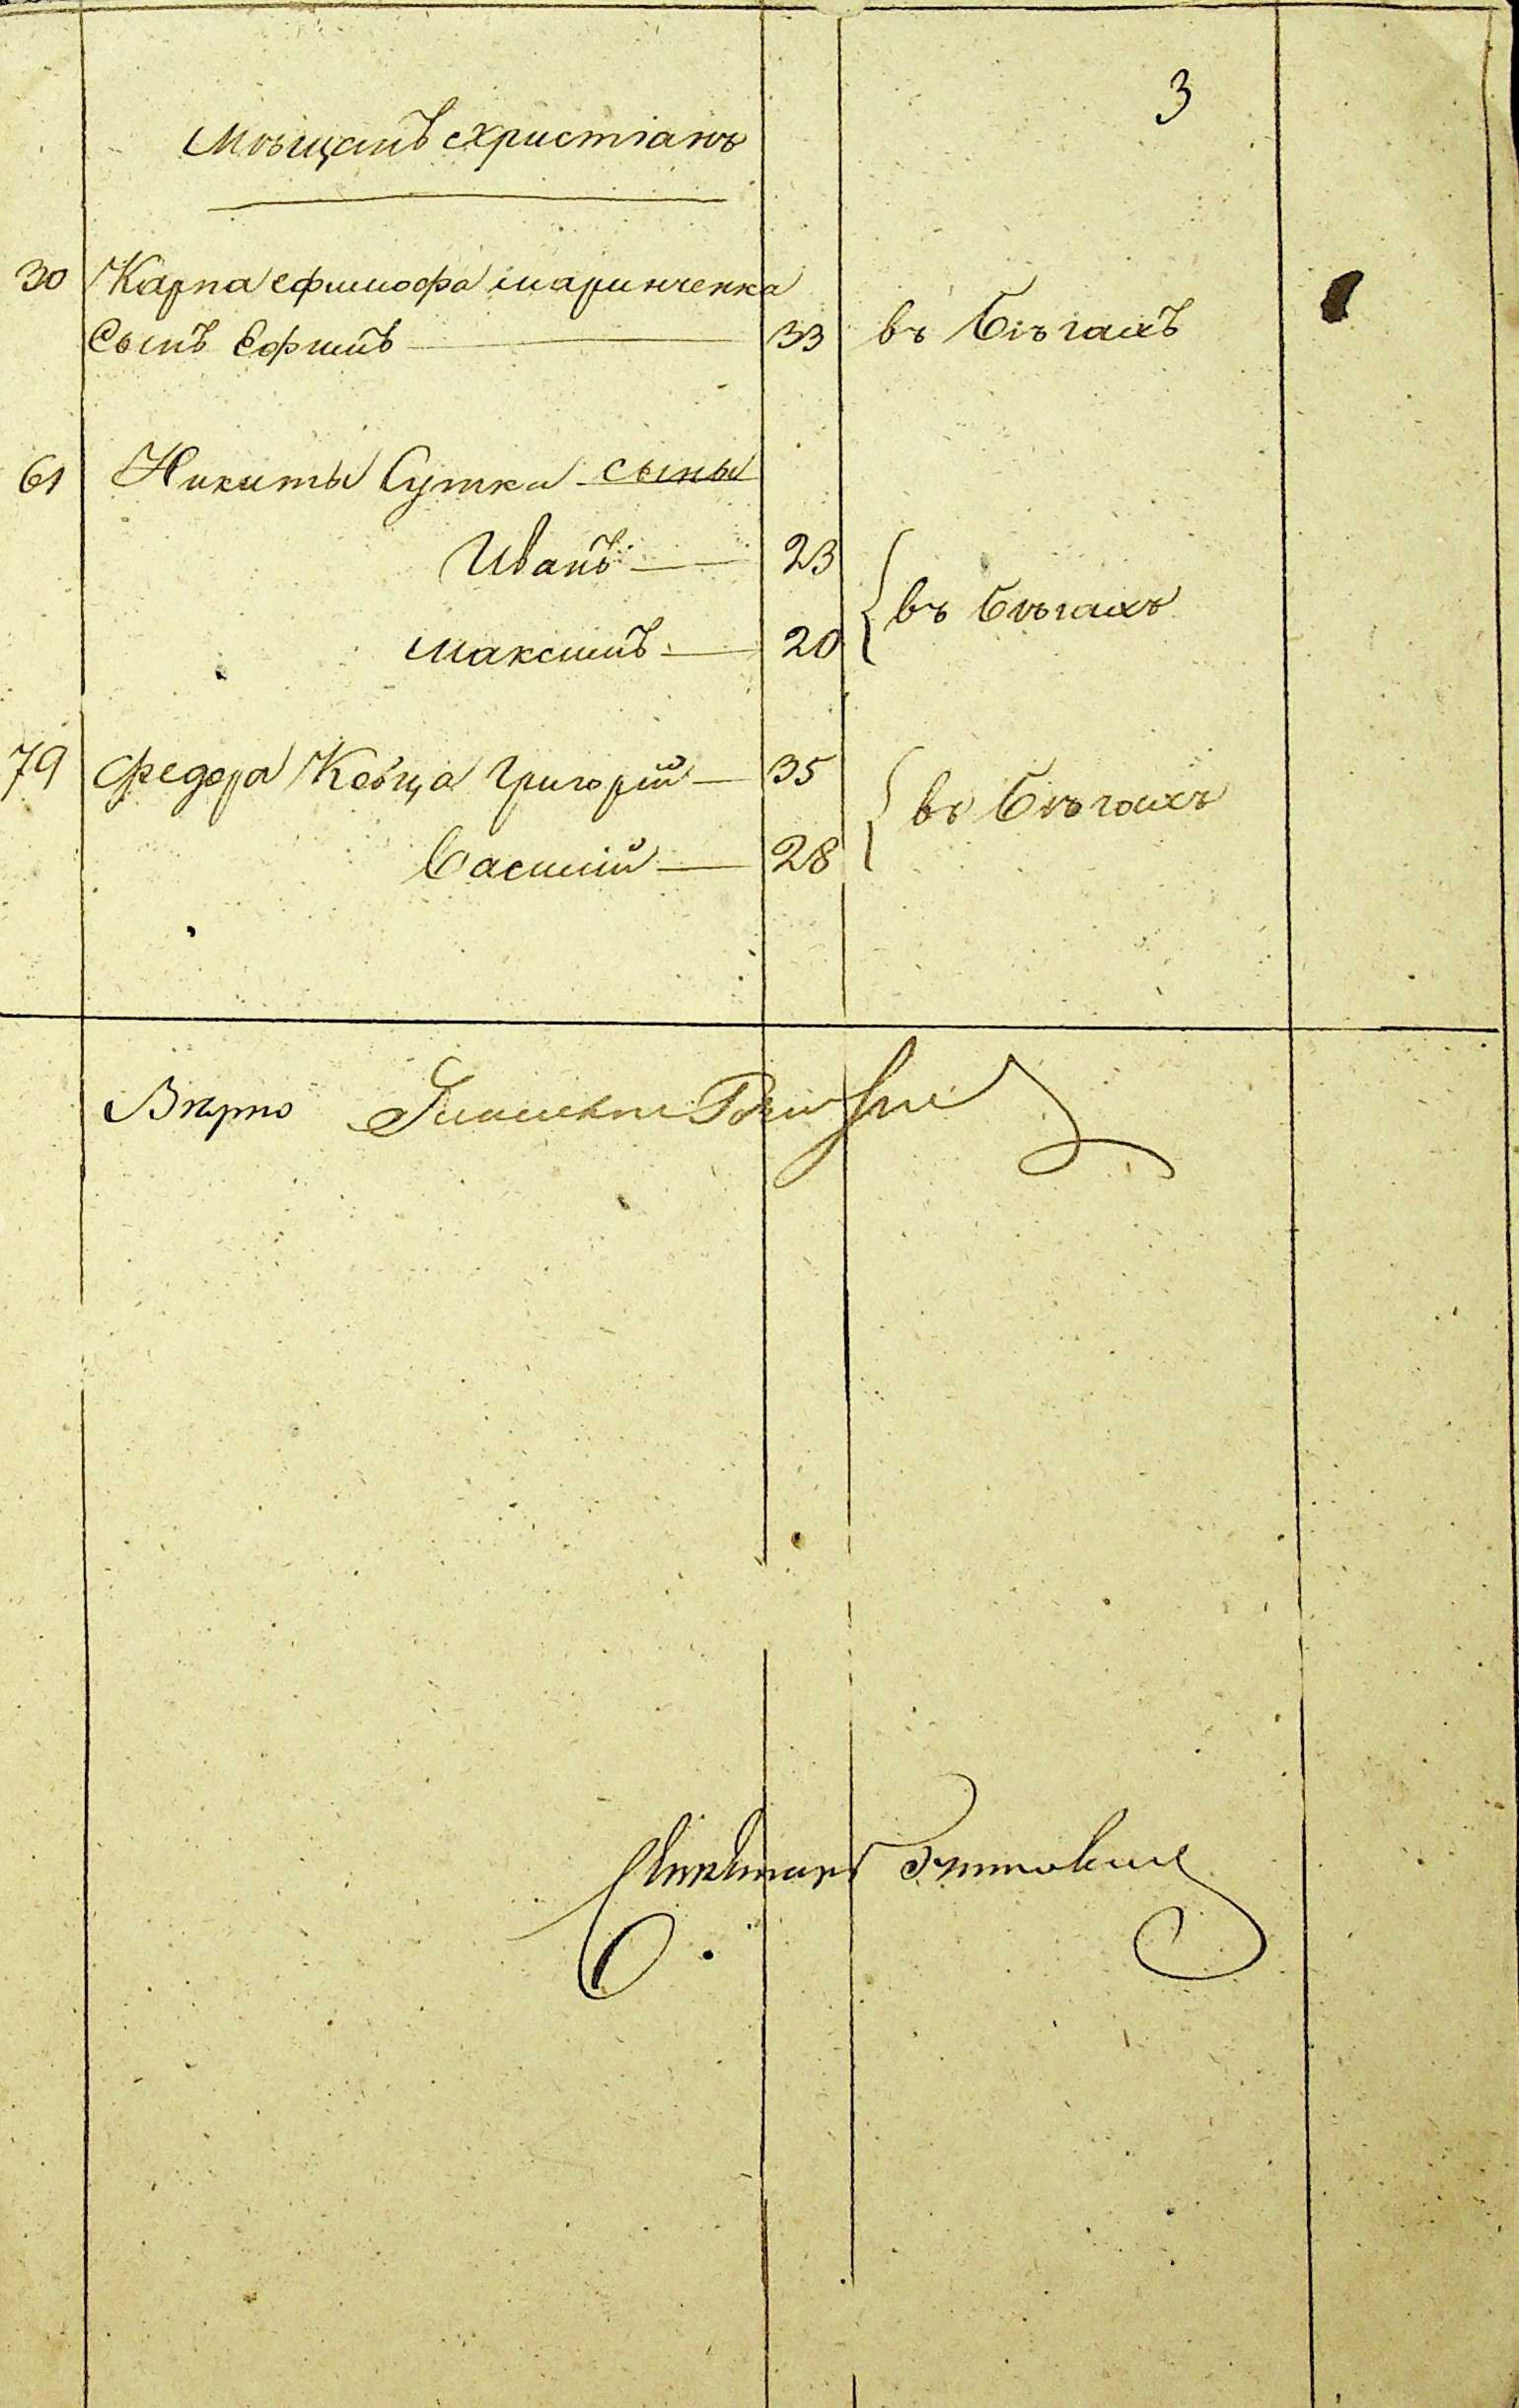 3
Мѣщанъ христіанъ
30 Карпа Ефимофа Маринченка
Сынъ Ефимъ 33 въ бѣгахъ
61 Никиты Сутки сыны
Иванъ 23
въ бѣгахъ
Максимъ 20
79 Федора Ковца Григорій 35
въ бѣгахъ
Василій 28
Вѣрно